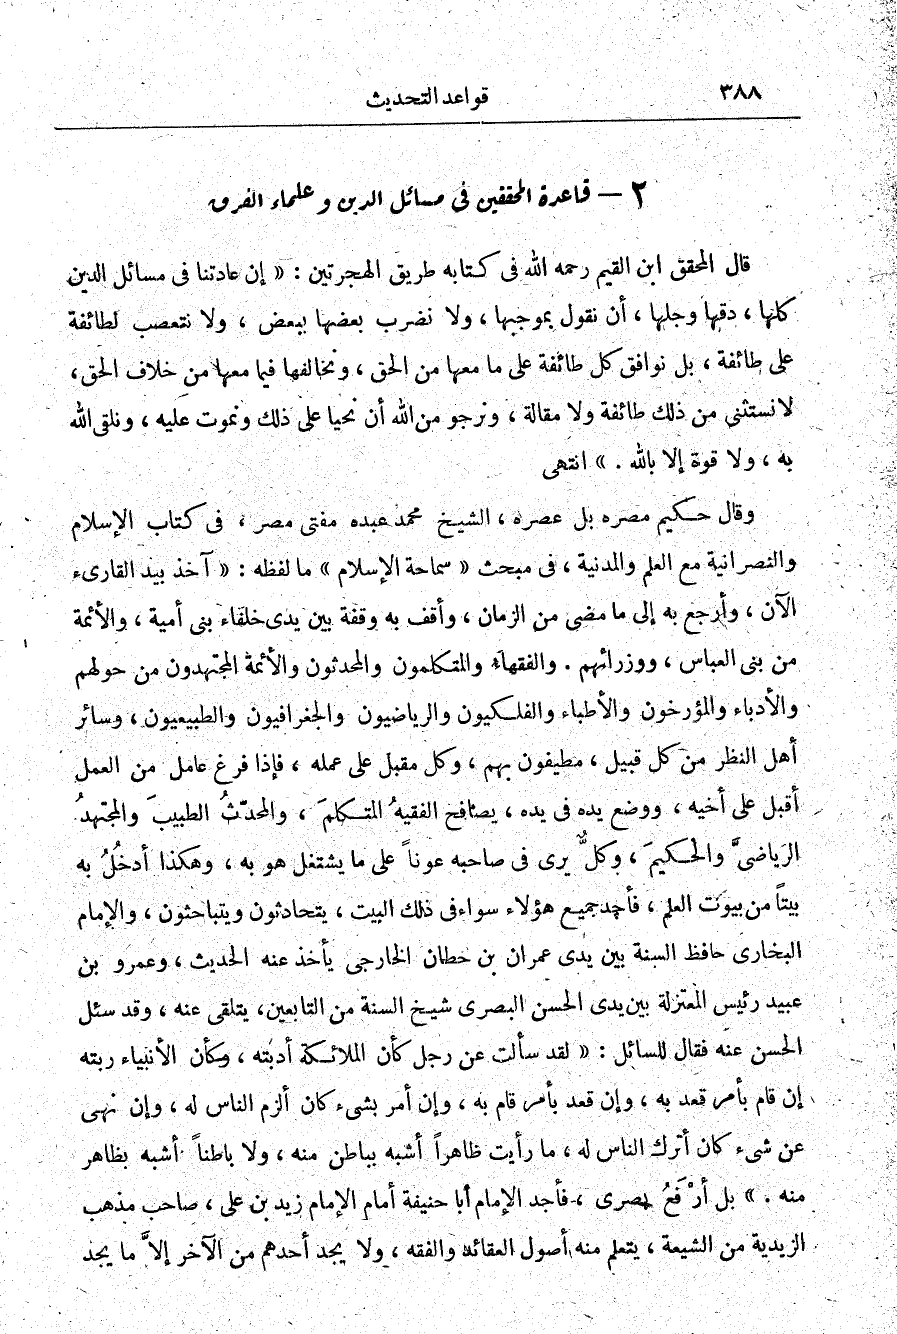 ٣٨٨
قواعد التحديث
٢ — قاعدة المحققين فى مسائل الدين وعلماء الفرق
قال المحقق ابن القيم رحمه الله فى كتابه طريق الهجرتين : « إن عادتنا فى مسائل الدين
كلها ، دقها وجلها ، أن نقول بموجبها ، ولا نضرب بعضها ببعض ، ولا نتعصب لطائفة
على طائفة ، بل نوافق كل طائفة على ما معها من الحق ، ونخالفها فيما معها من خلاف الحق ،
لا نستثنى من ذلك طائفة ولا مقالة ، ونرجو من الله أن نحيا على ذلك ونموت عليه ، ونلقى الله
به ، ولا قوة إلا بالله . » انتهى
وقال حكيم مصره بل عصره ، الشيخ محمد عبده مفتى مصر ، فى كتاب الإسلام
والنصرانية مع العلم والمدنية ، فى مبحث « سماحة الإسلام » ما لفظه : « آخذ بيد القارىء
الآن ، وأرجع به إلى ما مضى من الزمان ، وأقف به وقفة بين يدى خلفاء بنى أمية ، والأئمة
من بنى العباس ، ووزرائهم . والفقهاء والمتكلمون والمحدثون والأئمة المجتهدون من حولهم
والأدباء والمؤرخون والأطباء والفلكيون والرياضيون والجغرافيون والطبيعيون ، وسائر
أهل النظر من كل قبيل ، مطيفون بهم ، وكل مقبل على عمله ، فإذا فرغ عامل من العمل
أقبل على أخيه ، ووضع يده فى يده ، يصافح الفقيهُ المتكلمَ ، والمحدّثُ الطبيبَ والمجتهدُ
الرياضىَّ والحكيمَ ، وكلٌّ يرى فى صاحبه عوناً على ما يشتغل هو به ، وهكذا أدخُلُ به
بيتاً من بيوت العلم ، فأجد جميع هؤلاء سواء فى ذلك البيت ، يتحادثون ويتباحثون ، والإمام
البخارى حافظ السنة بين يدى عمران بن حطان الخارجى يأخذ عنه الحديث ، وعمرو بن
عبيد رئيس المعتزلة بين يدى الحسن البصرى شيخ السنة من التابعين، يتلقى عنه ، وقد سئل
الحسن عنه فقال للسائل : « لقد سألت عن رجل كأن الملائكة أدبته ، وكأن الأنبياء ربته
إن قام بأمر قعد به ، وإن قعد بأمر قام به ، وإن أمر بشىء كان ألزم الناس له ، وإن نهى
عن شىء كان أترك الناس له ، ما رأيت ظاهراً أشبه بباطن منه ، ولا باطناً أشبه بظاهر
منه . » بل أرْفَعُ بصرى ، فأجد الإمام أبا حنيفة أمام الإمام زيد بن على ، صاحب مذهب
الزيدية من الشيعة ، يتعلم منه أصول العقائد والفقه ، ولا يجد أحدهم من الآخر إلاَّ ما يجد